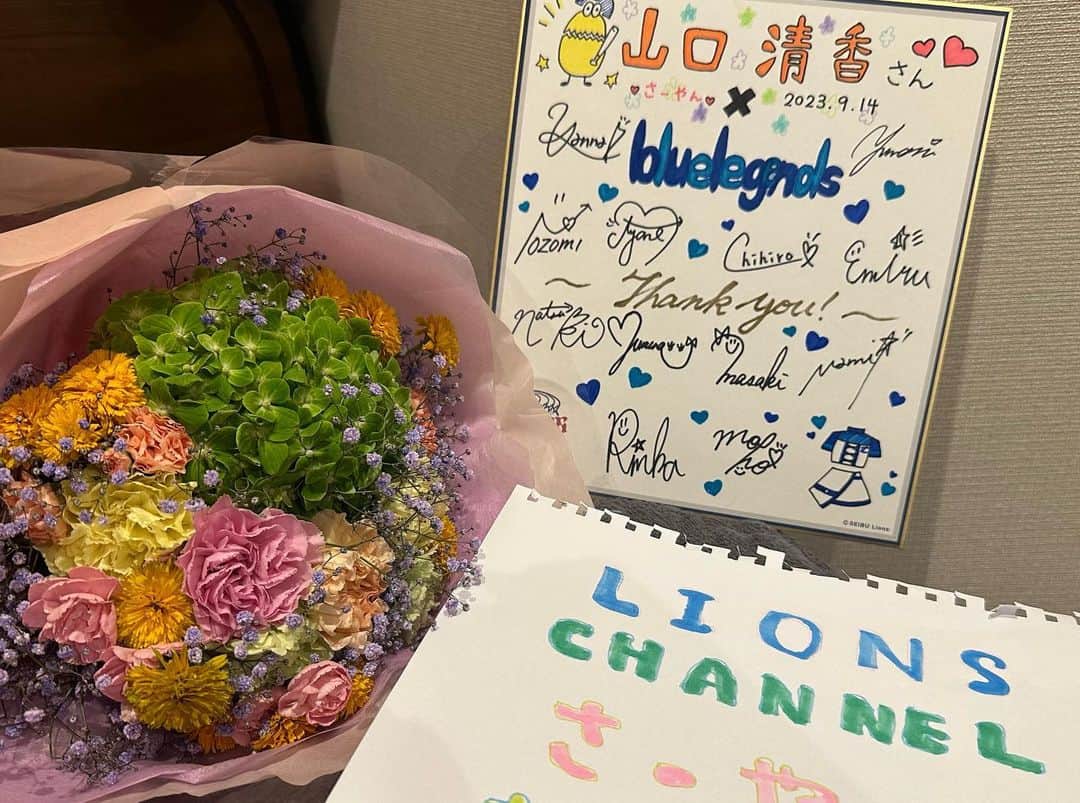 山口 清香 さん
さーやん × 2023.9.14
bluelegends
Nozomi Ayane Chihiro Emiru
~ Thank you! ~
Natsuki masaki nami
Rinka
©SEIBU Lions
LIONS
CHANNEL
さーや